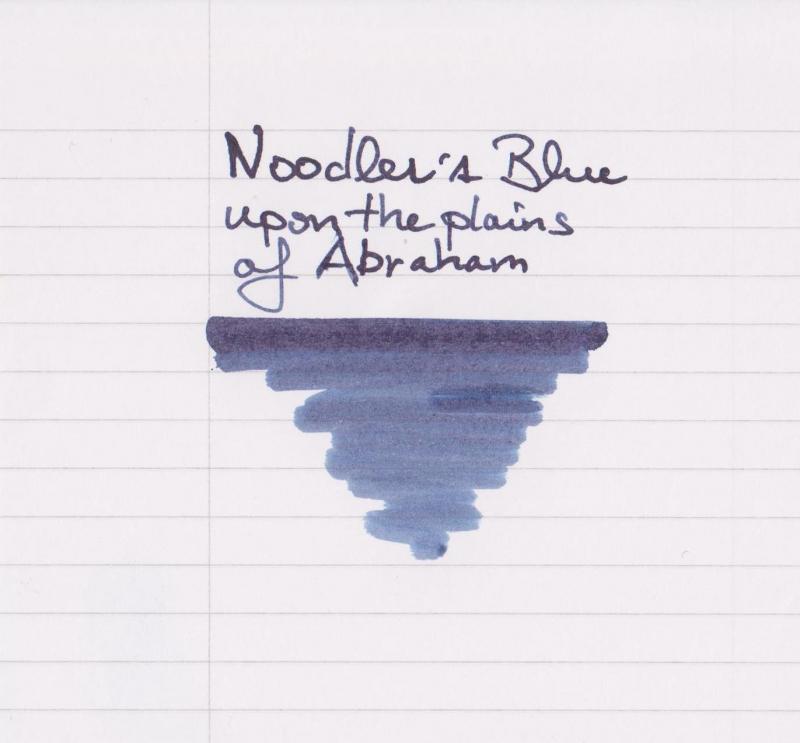 Noodler's Blue
upon the plains
of Abraham